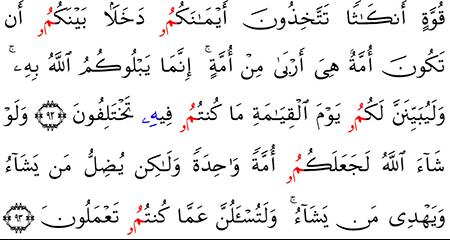 قُوَّةٍ أَنكَٰثًا تَتَّخِذُونَ أَيْمَٰنَكُمُو دَخَلًۢا بَيْنَكُمُو أَن
تَكُونَ أُمَّةٌ هِىَ أَرْبَىٰ مِنْ أُمَّةٍ ۚ إِنَّمَا يَبْلُوكُمُ ٱللَّهُ بِهِۦ ۚ
وَلَيُبَيِّنَنَّ لَكُمُو يَوْمَ ٱلْقِيَٰمَةِ مَا كُنتُمُو فِيهِۦ تَخْتَلِفُونَ ﴿٩٢﴾ وَلَوْ
شَآءَ ٱللَّهُ لَجَعَلَكُمُو أُمَّةً وَٰحِدَةً وَلَٰكِن يُضِلُّ مَن يَشَآءُ
وَيَهْدِى مَن يَشَآءُ ۚ وَلَتُسْـَٔلُنَّ عَمَّا كُنتُمُو تَعْمَلُونَ ﴿٩٣﴾